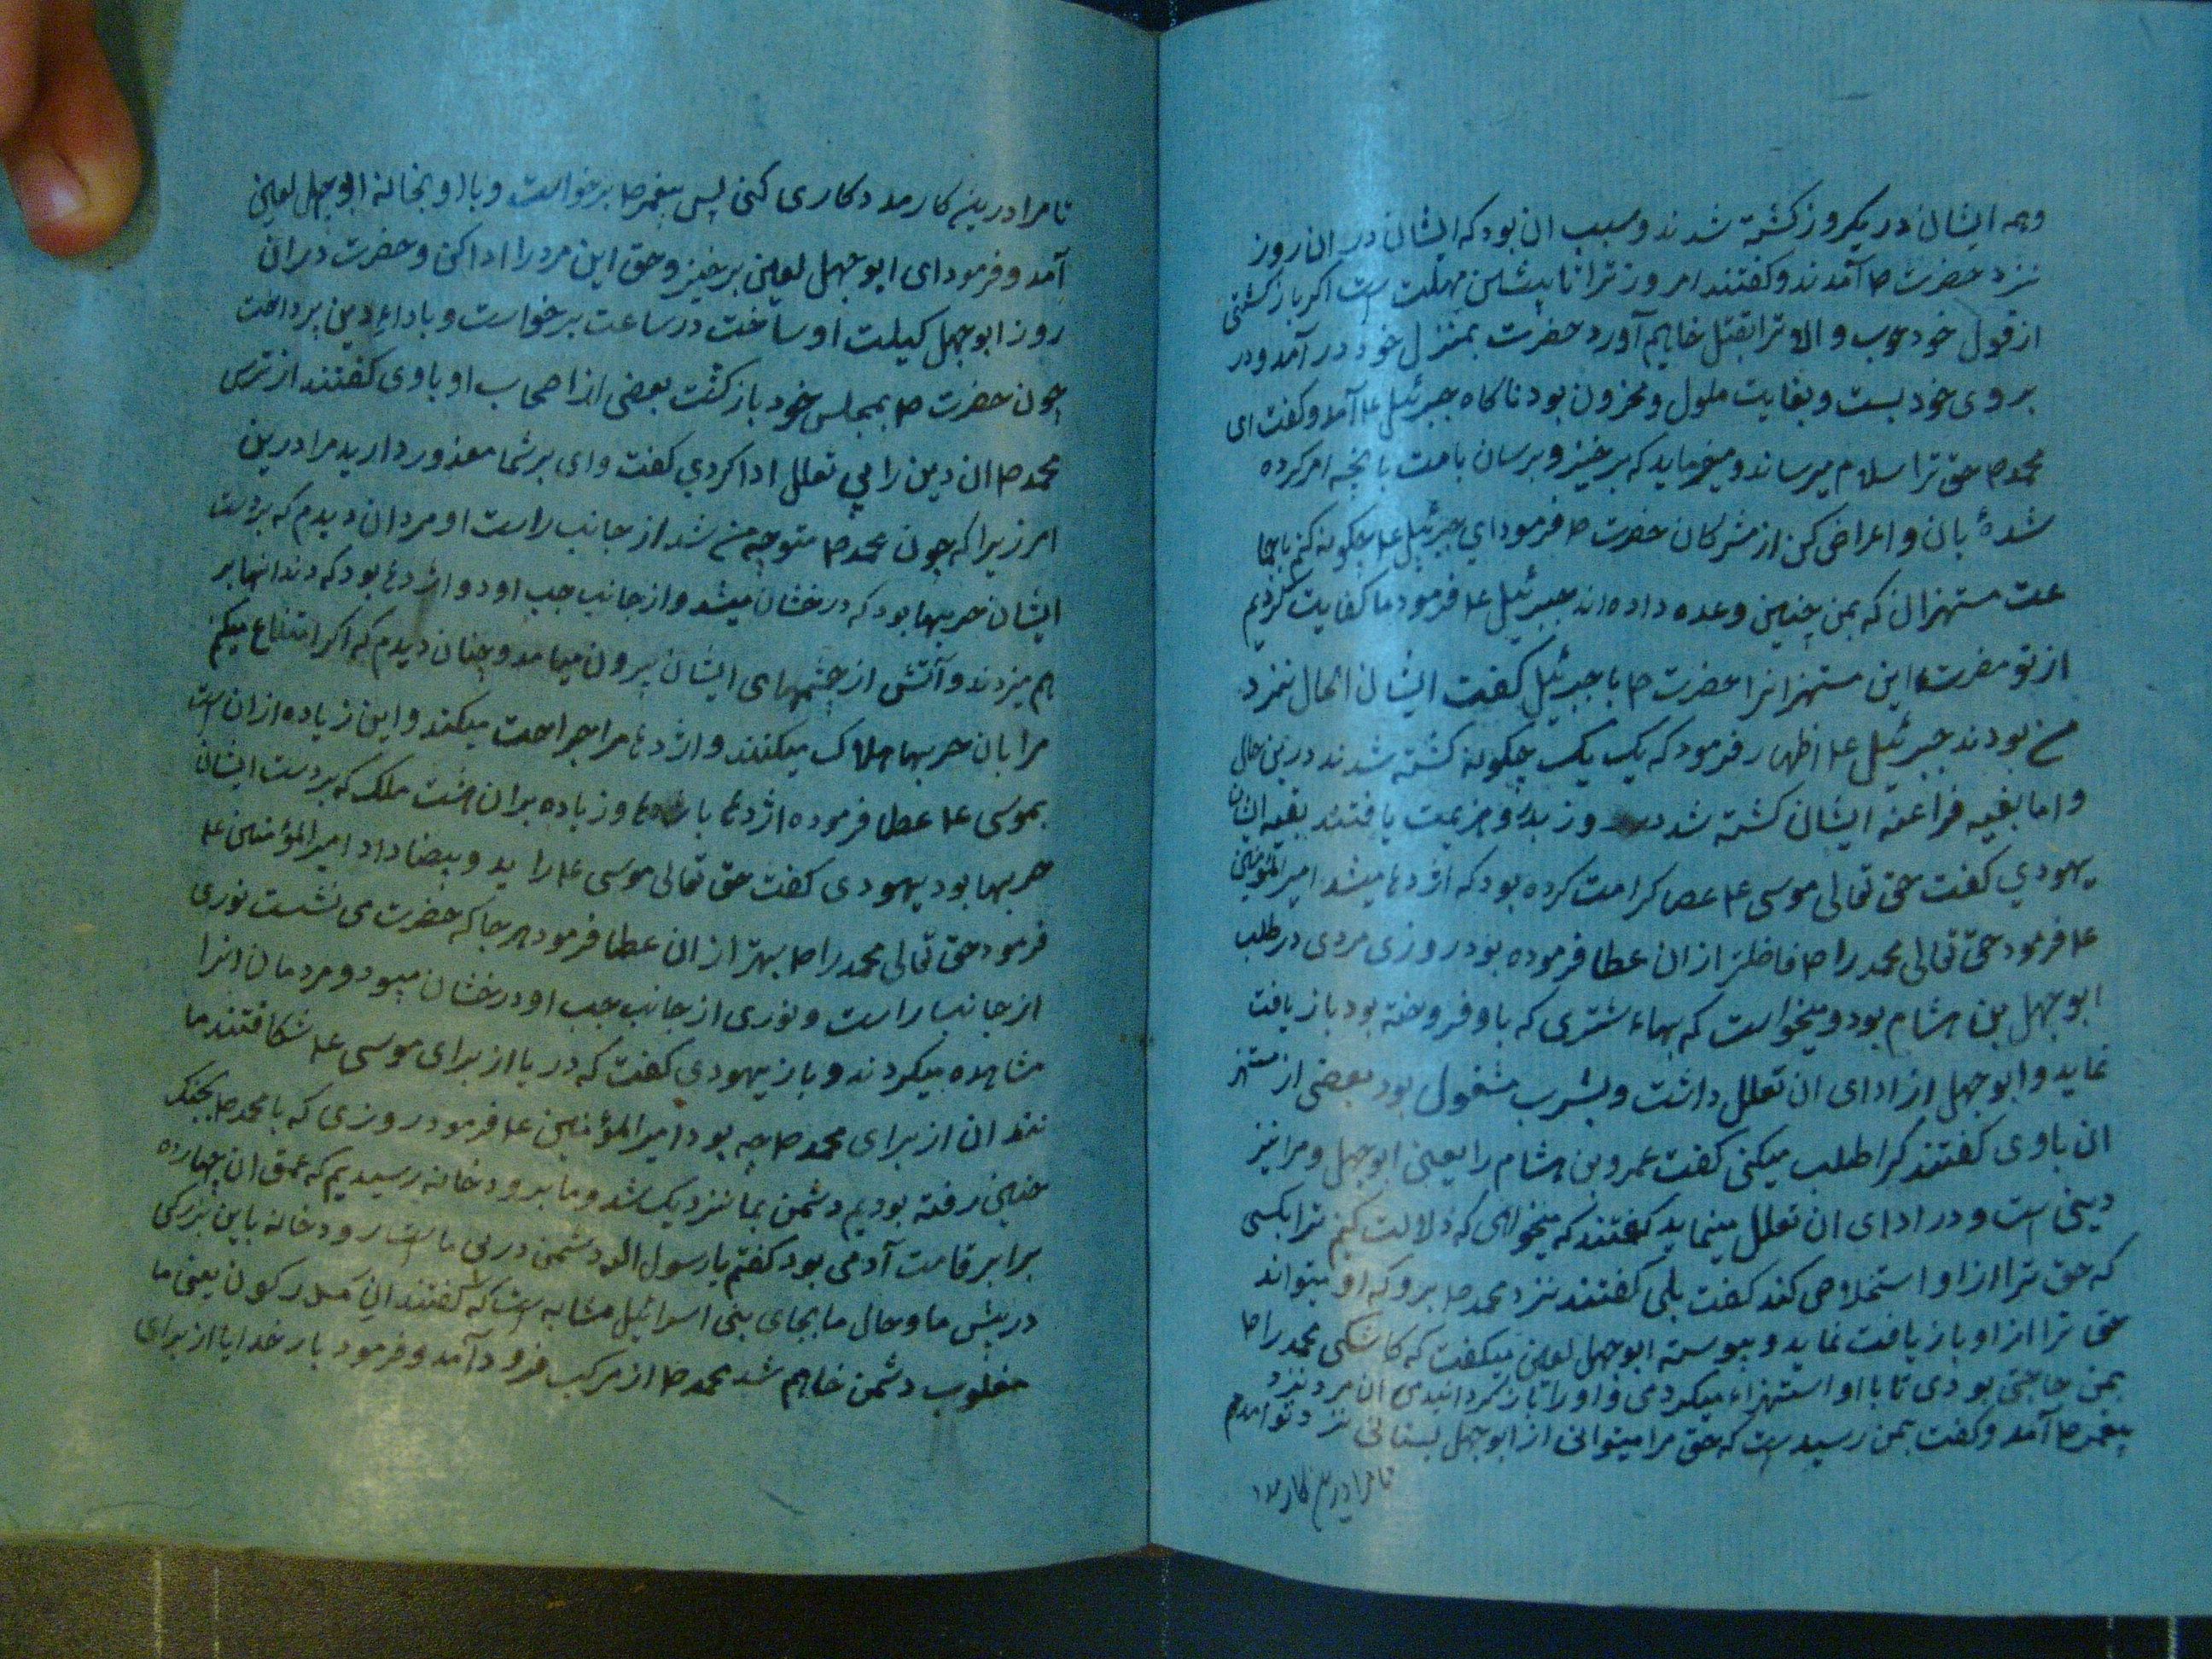 وهمه ایشان در یکروز کشته شدند و سبب ان بود که ایشان در ان روز
نزد حضرت ص آمدند و کفتند امروز ترا تا پیشین مهلت است اکر باز کشتی
از قول خود خوب و الا ترا بقتل خاهیم آورد حضرت بمنزل خود در آمد و در
بروی خود بست و بغایت ملول و محزون بود ناکاه جبرئیل ع آمد و کفت ای
محمد ص حق ترا سلام میرساند و میفرماید که برخیز و برسان بامت بانچه امر کرده
شدهٔ بان و اعراض کن از مشرکان حضرت ص فرمود ای جبرئیل ع چکونه کنم با جما
عت مستهزان که بمن چنین وعده داده اند جبرئیل ع فرمود ما کفایت کردیم
از تو مضرت این مستهزانرا حضرت ص با جبرئیل کفت ایشان الحال نزد
من بودند جبرئیل ع اظهار فرمود که یک یک چکونه کشته شدند درین حال
و اما بقیه فراعنه ایشان کشته شدند روز بدر و هزیمت یافتند بقیه ایشان
یهودي کفت حق تعالی موسی ع عصا کرامت کرده بود که اژدها میشد امیرالمؤمنین
ع فرمود حق تعالی محمد را ص فاضلتر از ان عطا فرموده بود روزی مردی در طلب
ابوجهل بن هشام بود و میخواست که بهاء شتری که باو فروخته بود باز یافت
نماید و ابوجهل از ادای ان تعلل داشت و بشرب مشغول بود بعضی از مستهز
ان باوی کفتند کرا طلب میکنی کفت عمرو بن هشام را یعنی ابوجهل و مرا نیز
دینی است و در ادای ان تعلل مینماید کفتند که میخواهی که دلالت کنم ترا بکسی
که حق ترا از او استخلاص کند کفت بلی کفتند نزد محمد ص برو که او میتواند
حق ترا از او باز یافت نماید و پیوسته ابوجهل لعین میکفت که کاشکی محمد را ص
بمن حاجتی بودی تا با او استهزاء میکردمی و او را باز کردانیدی ان مرد نزد
پیغمبر ص آمد و کفت بمن رسید است که حق مرا میتوانی از ابوجهل بستانی نزد تو امدم
تا مرا درین کار مدد
تا مرا درین کار مدد کاری کنی پس پیغمبر ص برخواست و با او بخانه ابوجهل لعین
آمد و فرمود ای ابوجهل لعین برخیز و حق این مرد را ادا کن و حضرت در ان
روز ابوجهل کیلت او ساخت در ساعت برخواست و باداء دین پرداخت
چون حضرت ص بمجلس خود باز کشت بعضی از اصحاب او باوی کفتند از ترس
محمد ص ان دین را بي تعلل ادا کردي کفت وای بر شما معذور دارید مرا درین
امر زیرا که چون محمد ص متوجه من شد از جانب راست او مردان دیدم که بر دست
ایشان حربها بود که درخشان میشد و از جانب چب او دو اژدها بود که دندانها بر
هم میزدند و آتش از چشمهای ایشان بیرون میامد و چنان دیدم که اکر امتناع میکنم
مرا بان حربها هلاک میکنند و اژدها مرا جراحت میکند و این زیاده از ان است
بموسی ع عطا فرموده اژدها با اژدها و زیاده بر ان هشت ملک که بر دست ایشان
حربها بود یهودی کفت حق تعالی موسی ع را ید و بیضا داد امیرالمؤمنین ع
فرمود حق تعالی محمد را ص بهتر از ان عطا فرمود هر جا که حضرت می نشست نوری
از جانب راست و نوری از جانب چب او درخشان میبود و مردمان انرا
مشاهده میکردند و باز یهودي کفت که دریا از برای موسی ع شکافتند ما
نند ان از برای محمد ص چه بود امیرالمؤمنین ع فرمود روزی که با محمد ص بجنک
حنین رفته بودیم دشمن بما نزدیک شد و ما برودخانه رسیدیم که عمق ان چهارده
برابر قامت آدمی بود کفتم یا رسول الله دشمن در پی ماست رودخانه باین بزرکی
در پیش ما و حال ما بجای بنی اسرائیل مشابه است که کفتند ان لمدرکون یعنی ما
مغلوب دشمن خاهیم شد محمد ص از مرکب فرود آمد و فرمود بار خدایا از برای